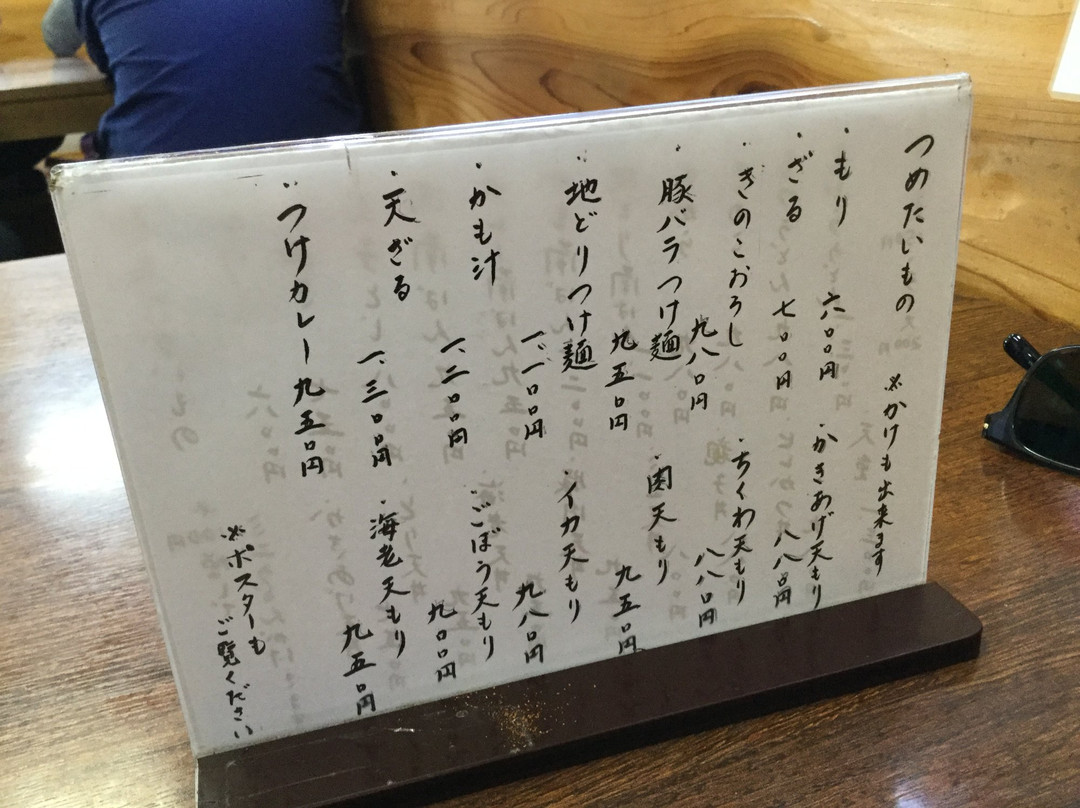 つめたいもの ※かけも出来ます
・もり 六〇〇円
・ざる 七〇〇円
・きのこおろし 九八〇円
・豚バラつけ麺 九五〇円
・地どりつけ麺 一、一〇〇円
・かも汁 一、二〇〇円
・天ざる 一、三〇〇円
・つけカレー 九五〇円
・かきあげ天もり 八八〇円
・ちくわ天もり 八八〇円
・肉天もり 九五〇円
・イカ天もり 九八〇円
・ごぼう天もり 九〇〇円
・海老天もり 九五〇円
※ポスターも
ご覧ください